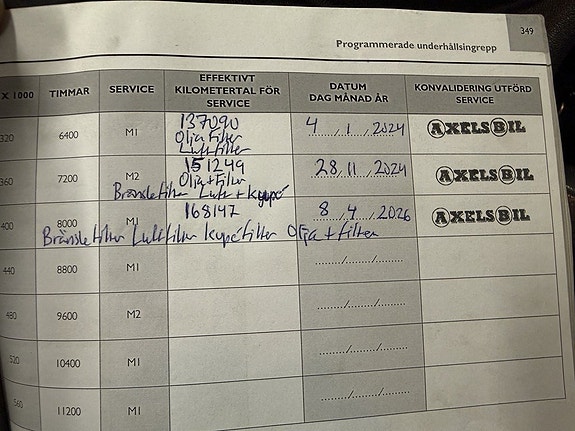 349
Programmerade underhållsingrepp
X 1000 TIMMAR SERVICE EFFEKTIVT KILOMETERTAL FÖR SERVICE DATUM DAG MÅNAD ÅR KONVALIDERING UTFÖRD SERVICE
320 6400 M1 137090 4/1/2024 AXELS BIL
Olja Filter
Luftfilter
360 7200 M2 151249 28/11/2024 AXELS BIL
Olja + Filter
Bränslefilter Luft + kupé
400 8000 M1 168147 8/4/2026 AXELS BIL
Bränslefilter Luftfilter kupéfilter Olja + filter
440 8800 M1 ....../....../......
480 9600 M2 ....../....../......
520 10400 M1 ....../....../......
560 11200 M1 ....../....../......